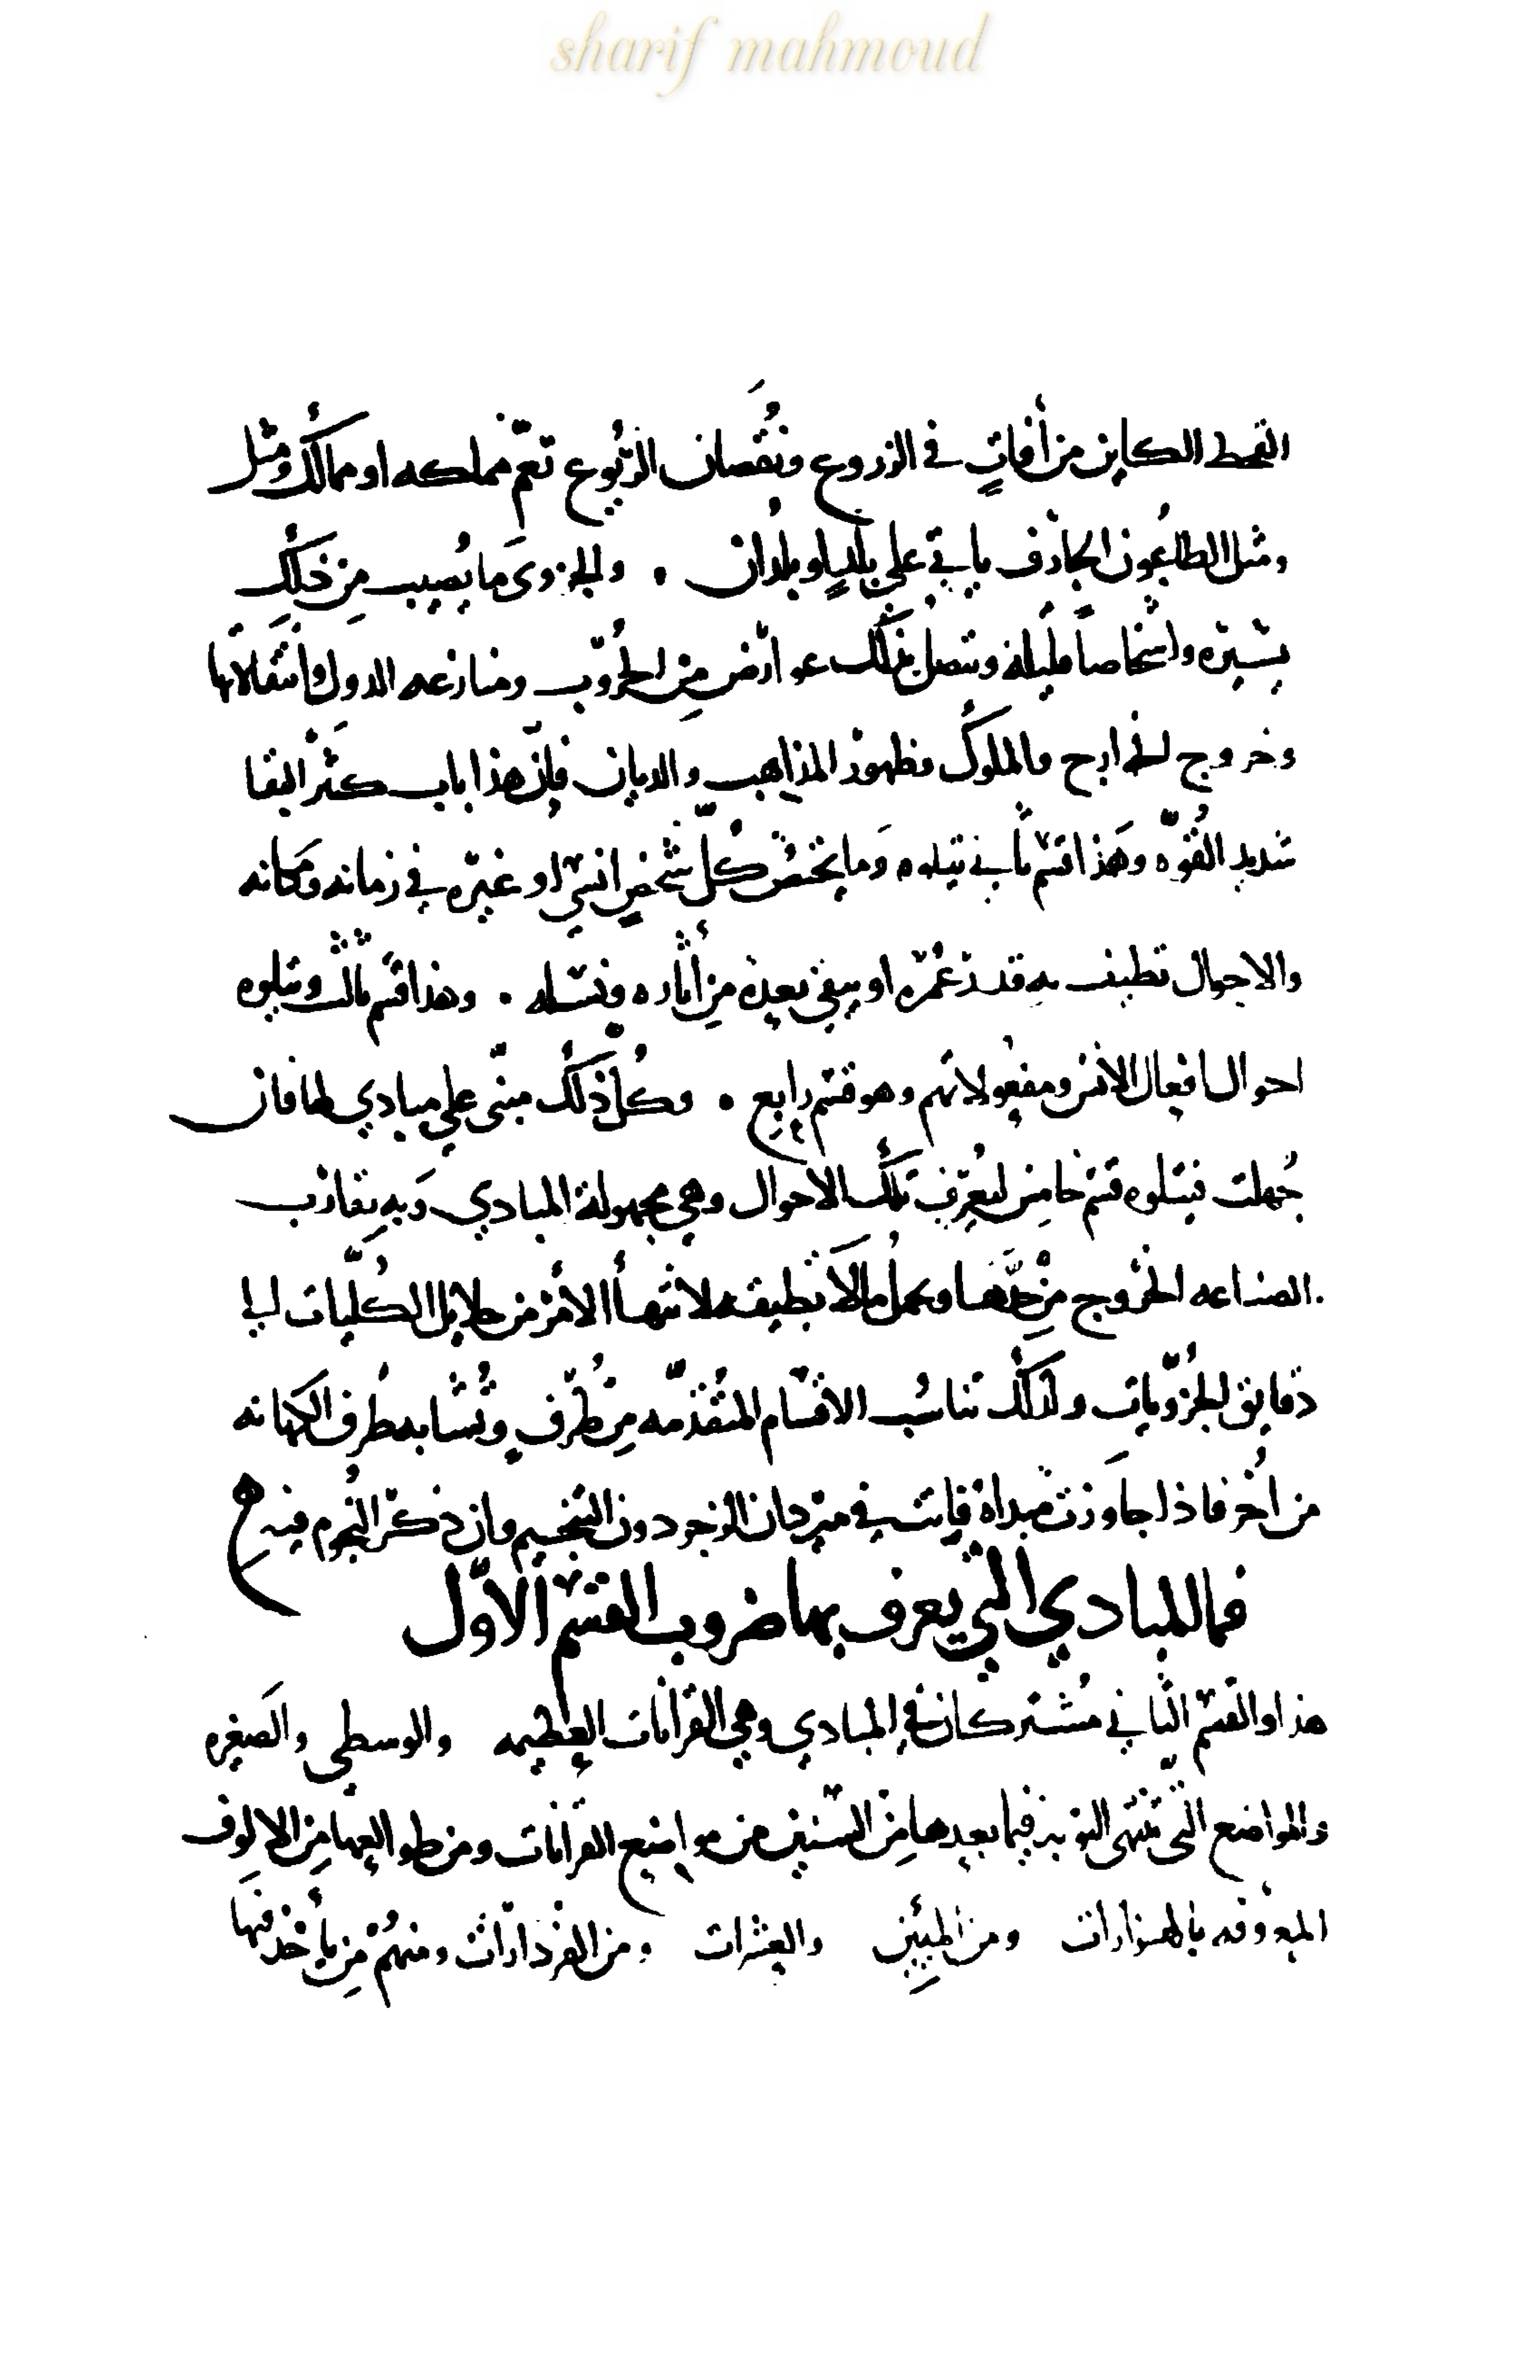 sharif mahmoud
القحط الكاين من أفاتٍ في الزروع ونُقصَان الرّيُوع تعمّ مملكه او ممالك ومثل
ومثل الطاعُون الجارف ياتي على بلدٍ او بلدان . والجزوى ما يُصيب مِن ذلك
يسيره واشخاصاً قليلة ويتصلُ بذلك عوارض مِن الحُروب ومنازعه الدول وانتقالاتها
وخروج الخوارج والملوك وظهور المذاهب والاديان فإنّ هذا باب كثير
شديد القُوّه وهَذا قسم ثاني يتلوه وَما يختصّ كلّ شخصٍ انسى او غيره في زمانه ومكانه
والاحوال تطيف به قدر عُمره او يبقى بعده مِن أثاره ونسله . وهذا قسم ثالث ويتلوه
احوال افعال الانس ومفعولاتهم وهو قسم رابع . وكُل ذلك مبنى على مبادي لها فان
جُهلت فيتلوه قسم خامس لتعرّف تلك الاحوال وهي مجهولة المبادي وَبه تقارب
الصناعه الخروج مِن حَدّها وتحملُ ما لا تطيقه لانتهاأ الأمر من جلايل الكُلّيات الى
دقايق الجُزوّيات ولذلك تناسُب الاقسام المتُقدّمه مِن طُرقٍ وتُشابه طُرق الكهانه
من اُخر فاذا جاوزت مبداهُ فاتت في ميزدان الزجر دون التنجيم وان ذكر النُجوم فيه
فما المبادي التي يعرف بها ضروب القسم الأوّل
هذا والقسم الثاني مُشتركان في المبادي وهي القرانات العظيمه والوسطى والصَغيره
والمواضع التي تنتهى النوبه فيما بعدها مِن السّنين من مواضع القرانات ومن طوالعها مِن الالوف
المعروفه بالهزارات ومن المِئين والعشرات ومن الفردارات ومنهُم مِن يأخذ فيها